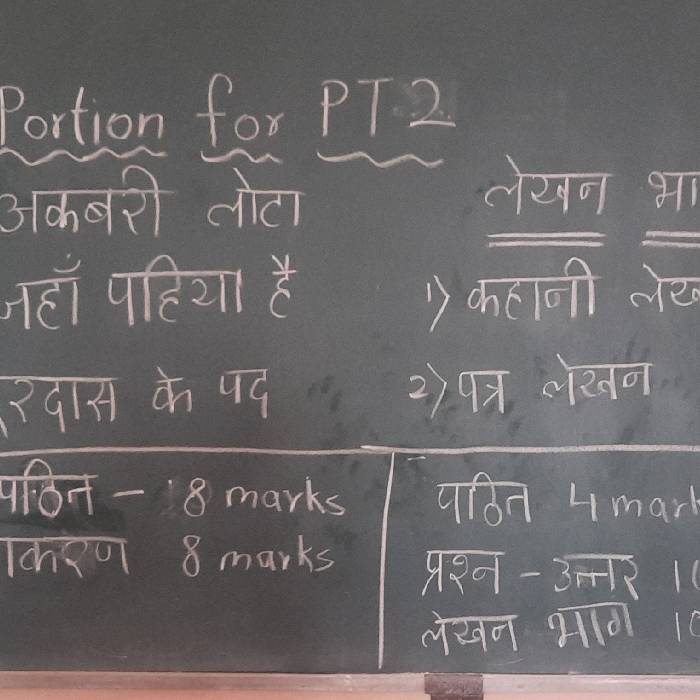 Portion for PT 2
अकबरी लोटा
जहाँ पहिया है
के पद
लेखन
1) कहानी
2) पत्र लेखन
पठित - 8 marks
8 marks
पठित 4
प्रश्न - उत्तर
लेखन भाग